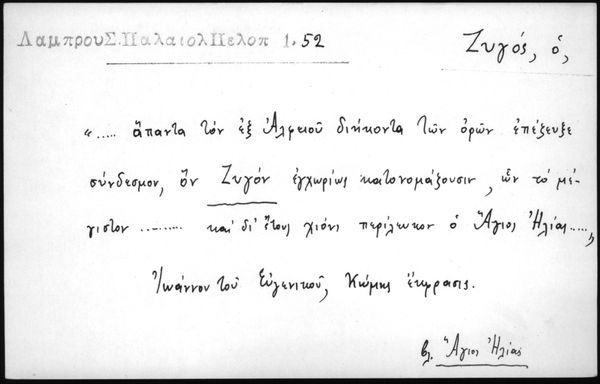 ΛαμπρουΣ.ΠαλαιολΠελοπ 1.52
Ζυγός, ὁ,
«..... ἅπαντα τόν ἐξ Ἀλφειοῦ διήκοντα τῶν ὁρῶν ἐπέξευξε
σύνδεσμον, ὅν Ζυγόν ἐγχωρίως κατονομάζουσιν, ὧν τό μέ-
γιστον .......... καί δι' ἔτους χιόνι περίλευκον ὁ Ἅγιος Ἠλίας.....,
Ἰωάννου τοῦ Εὐγενικοῦ, Κώμης ἔκφρασις.
βλ. Ἅγιος Ἠλίας